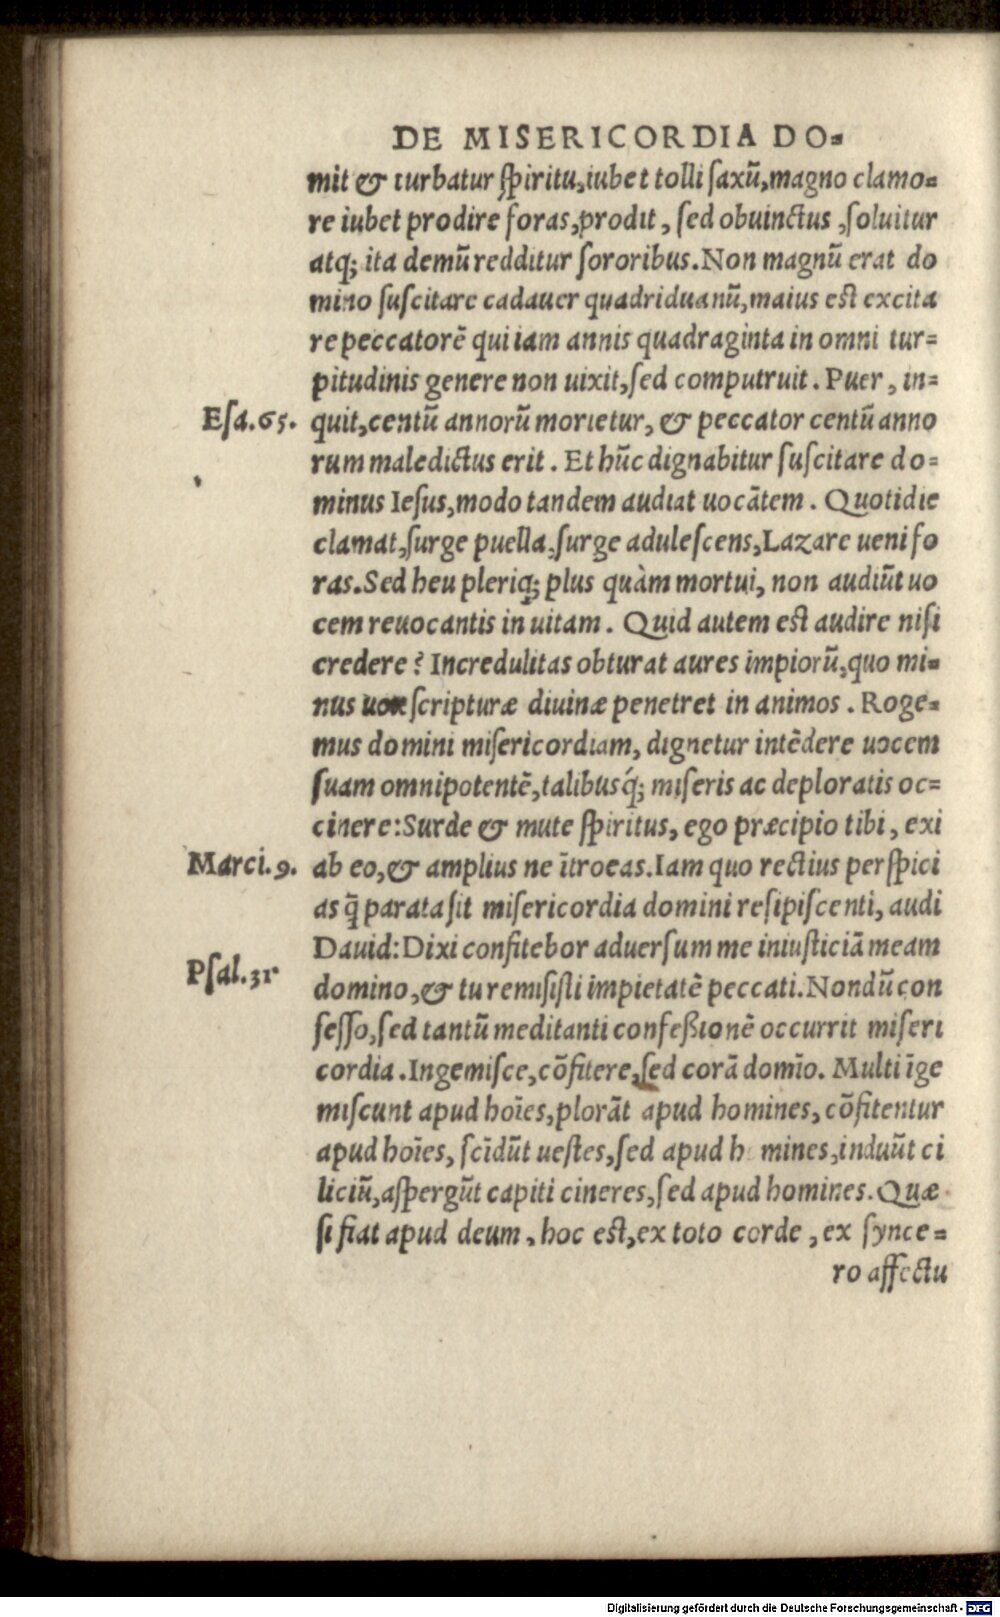 DE MISERICORDIA DO=
mit & turbatur spiritu, iubet tolli saxũ, magno clamo=
re iubet prodire foras, prodit, sed obuinctus, soluitur
atq; ita demũ redditur sororibus. Non magnũ erat do
mino suscitare cadauer quadriduanũ, maius est excita
re peccatorẽ qui iam annis quadraginta in omni tur=
pitudinis genere non uixit, sed computruit. Puer, in=
Esa.65. quit, centũ annorũ morietur, & peccator centũ anno
rum maledictus erit. Et hũc dignabitur suscitare do=
minus Iesus, modo tandem audiat uocãtem. Quotidie
clamat, surge puella, surge adulescens, Lazare ueni fo
ras. Sed heu pleriq; plus quàm mortui, non audiũt uo
cem reuocantis in uitam. Quid autem est audire nisi
credere? Incredulitas obturat aures impiorũ, quo mi=
nus uox scripturæ diuinæ penetret in animos. Roge=
mus domini misericordiam, dignetur intẽdere uocem
suam omnipotentẽ, talibusq́; miseris ac deploratis oc=
cinere: Surde & mute spiritus, ego præcipio tibi, exi
Marci.9. ab eo, & amplius ne ĩtroeas. Iam quo rectius perspici
as q̃ parata sit misericordia domini resipiscenti, audi
Dauid: Dixi confitebor aduersum me iniusticiã meam
Psal.31 domino, & tu remisisti impietatẽ peccati. Nondũ con
fesso, sed tantũ meditanti confeßionẽ occurrit miseri
cordia. Ingemisce, cõfitere, sed corã domĩo. Multi ĩge
miscunt apud hoĩes, plorãt apud homines, cõfitentur
apud hoĩes, scĩdũt uestes, sed apud h mines, induũt ci
liciũ, aspergũt capiti cineres, sed apud homines. Quæ
si fiat apud deum, hoc est, ex toto corde, ex synce=
ro affectu
Digitalisierung gefördert durch die Deutsche Forschungsgemeinschaft - DFG